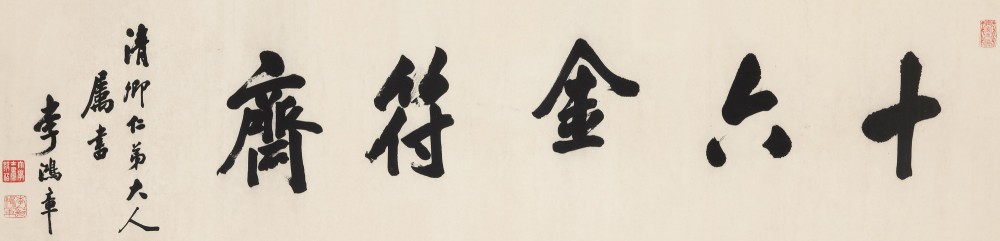 十六金符齊
清卿仁弟大人
属書
李鴻章